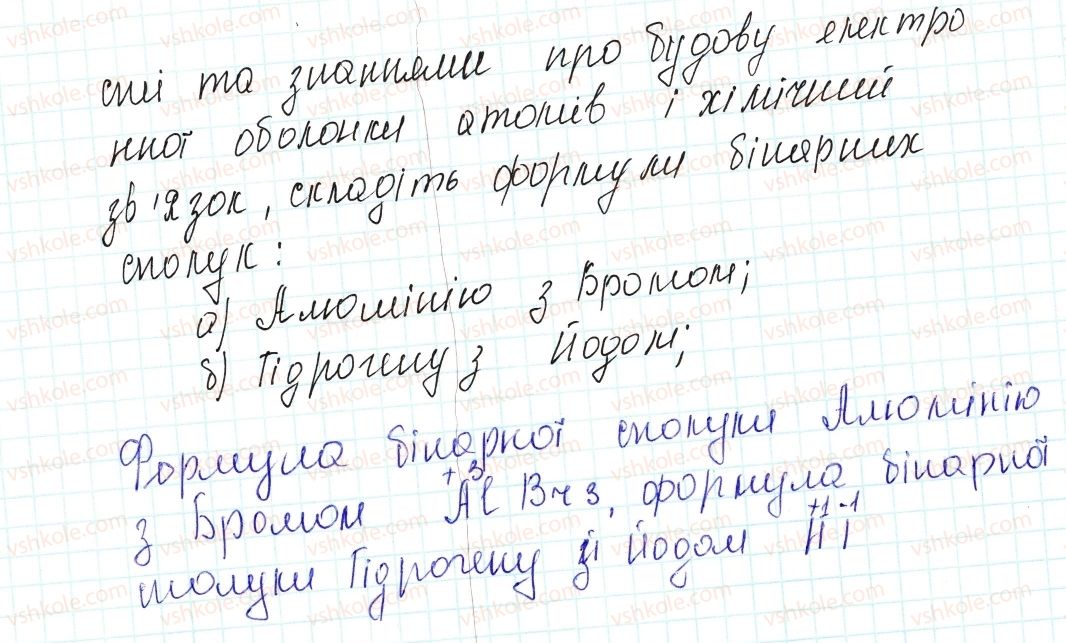 сті та знаннями про будову електро
нної оболонки атомів і хімічний
зв'язок, складіть формули бінарних
сполук:
а) Алюмінію з Бромом;
б) Гідрогену з Йодом;
Формула бінарної сполуки Алюмінію
з Бромом Al⁺³Br₃, формула бінарної
сполуки Гідрогену зі Йодом H⁺¹I⁻¹